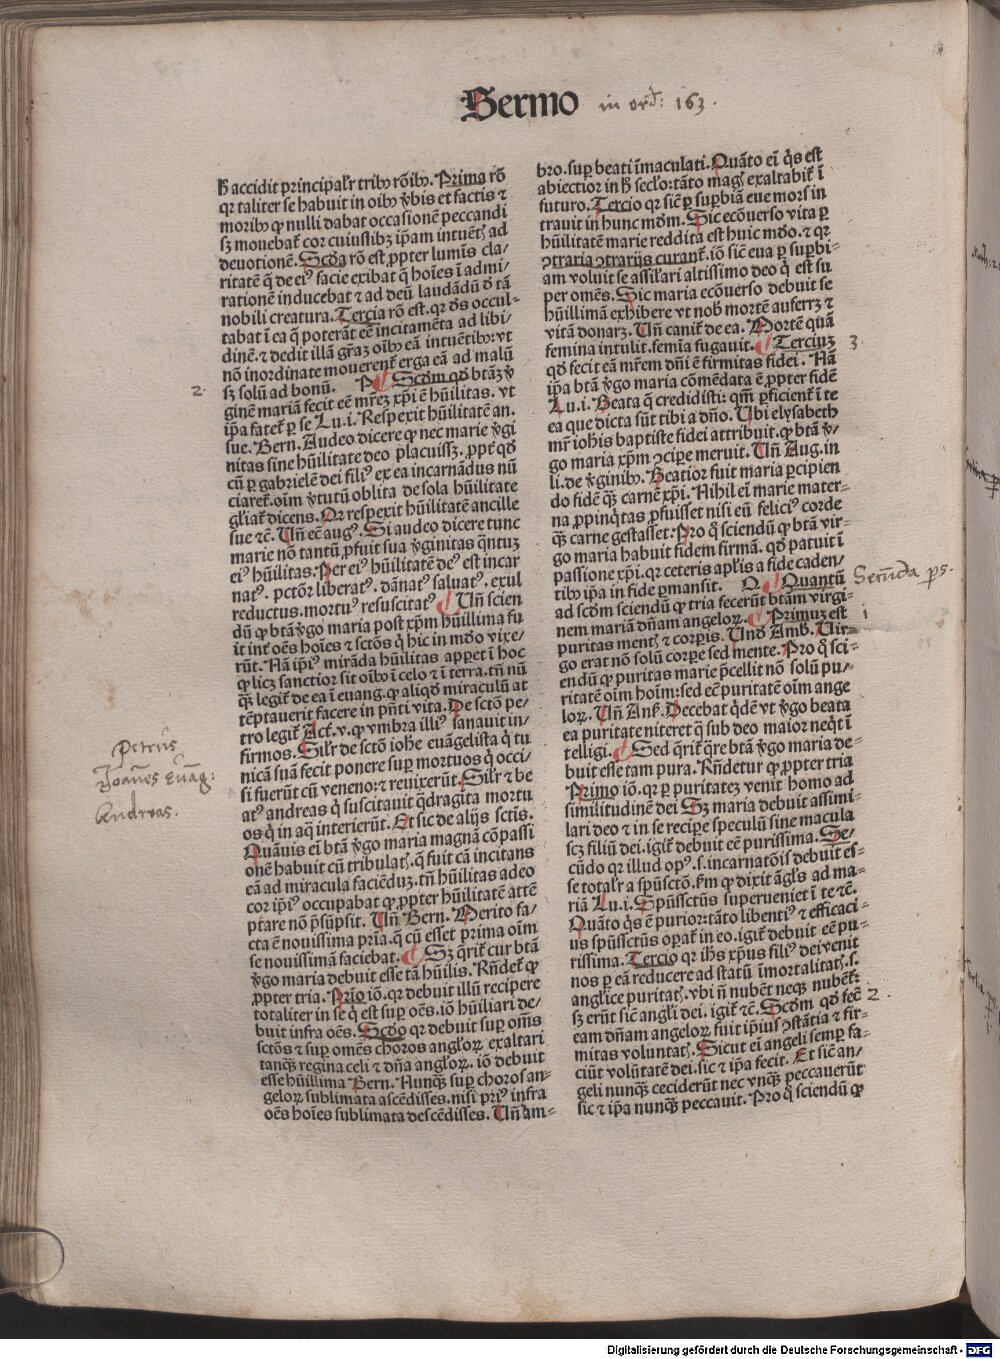 Sermo in ord: 163.
ħ accidit principalr̄ tribꝰ rōibꝰ. Prima rō
qr taliter se habuit in oibꝰ v̄bis et factis ⁊
moribꝰ ꝙ nulli dabat occasionē peccandi
sꝫ mouebat̄ cor cuiuslibꝫ ip̄am intuēt̄ꝭ ad
deuotionē. Scd̄a rō est ꝓpter lumīs cla/
ritatē q̄ de eiꝰ facie exibat q̄ hoīes ī admi/
rationē inducebat ⁊ ad deū laudādū ꝺ tā
nobili creatura. Tercia rō est. qr ds̄ occul-
tabat ī ea q̄ poterāt eē incitamēta ad libi/
dinē. ⁊ dedit illā gr̄az oībꝰ eā intuētibꝰ: vt
nō inordinate mouerent̄ erga eā ad malū
2. sꝫ solū ad bonū. P Scd̄m qd̓ btāꝫ v̄
ginē mariā fecit eē mr̄eꝫ xp̄i ē hūilitas. vt
ip̄a fatet̄ ꝑ se Lu.i. Respexit hūilitatē an.
sue. Bern. Audeo dicere ꝙ nec marie v̄gi
nitas sine hūilitate deo placuissꝫ. ꝓpt̄ qd̓
cū ꝑ gabrielē dei filiꝰ ex ea incarnādus nū
ciaret̄. oīm v̄tutū oblita de sola hūilitate
gl̄iat̄ dicens. Qr respexit hūilitatē ancille
sue ⁊c̄. Uñ ec̄ augꝰ. Si audeo dicere tunc
marie nō tantū ꝓfuit sua v̄ginitas q̄ntuꝫ
eiꝰ hūilitas. Per eiꝰ hūilitatē deꝰ est incar
natꝰ. pctōr liberatꝰ. dānatꝰ saluatꝰ. exul
reductus. mortuꝰ resuscitatꝰ Uñ scien
dū ꝙ btā v̄go maria post xp̄m hūillima fu
it int̄ oēs hoīes ⁊ sctōs q̄ hic in mdo vixe/
rūt. Nā ip̄iꝰ mirāda hūilitas apꝑet ī hoc
ꝙ licꝫ sanctior sit oībꝰ ī celo ⁊ ī terra. tñ nū
q̄ꝫ legit̄ de ea ī euang. ꝙ aliqd̓ miraculū at
tēptauerit facere in pn̄ti vita. De sctō pe/
tro legit̄ Act̄. v. ꝙ vmbra illiꝰ sanauit in/
firmos. Silr̄ de sctō ioh̄e euāgelista q̄ tu
nicā suā fecit ponere suꝑ mortuos q̄ occi/
si fuerūt cū veneno: ⁊ reuixerūt. Silr̄ ⁊ be
atꝰ andreas q̄ suscitauit q̄dragīta mortu
os q̄ in aq̄ interierūt. Et sic de alijs sctīs.
Quāuis eī btā v̄go maria magnā cōpassi
onē habuit cū tribulat̄ꝭ. q̄ fuit cā incitans
eā ad miracula faciēduꝫ. tñ hūilitas adeo
cor ip̄iꝰ occupabat ꝙ ꝓpter hūilitatē attē
ptare nō p̄supsit. Uñ Bern. Merito fa/
cta ē nouissima pria. q̄ cū esset prima oīm
se nouissimā faciebat. Sꝫ q̄rit̄ cur btā
v̄go maria debuit esse tā hūilis. Rn̄det̄ ꝙ
ꝓpter tria. Prīo iō. qr debuit illū recipere
totaliter in se q̄ est suꝑ oēs. iō hūiliari de/
buit infra oēs. Scd̄o qr debuit suꝑ om̄s
sctōs ⁊ suꝑ omēs choros angl̄oꝝ exaltari
tanq̄ꝫ regina celi ⁊ dn̄a angl̄oꝝ. iō debuit
esse hūillima Bern. Nunq̄ꝫ suꝑ choros an-
geloꝝ sublimata ascēdisses. nisi priꝰ infra
oēs hoīes sublimata descēdisses. Uñ am-
Petrus
Joannes Euāg:
Andreas.
bro. suꝑ beati īmaculati. Quāto eī q̄s est
abiectior in ħ secl̄o: tāto magꝭ exaltabit̄ ī
futuro. Tercio qr sic̄ ꝑ suꝑbiā eue mors in
trauit in hunc mdm̄. Sic ecōuerso vita ꝑ
hūilitatē marie reddita est huic mdo. ⁊ qr
ꝯtraria ꝯtrarijs curant̄. iō sic̄ eua ꝑ suꝑbi-
am voluit se assil̄ari altissimo deo q̄ est su
per omēs. Sic maria ecōuerso debuit se
hūillimā exhibere vt nob̄ mortē auferꝫ ⁊
vitā donarꝫ. Uñ canit̄ de ea. Mortē quā
femina intulit. femīa fugauit. Terciuꝫ 3.
qd̓ fecit eā mr̄em dn̄i ē firmitas fidei. Nā
ip̄a btā v̄go maria cōmēdata ē ꝓpter fidē
Lu.i. Beata q̄ credidisti: qm̄ ꝑficient̄ ī te
ea que dicta sūt tibi a dño. Ubi elysabeth
mr̄ ioh̄is baptiste fidei attribuit. ꝙ btā v̄/
go maria xp̄m ꝯcipe meruit. Uñ Aug. in
li. de v̄ginibꝰ. Beatior fuit maria ꝑcipien
do fidē q̄ꝫ carnē xp̄i. Nihil eī marie mater-
na ꝓpinq̄tas ꝓfuisset nisi eū feliciꝰ corde
q̄ꝫ carne gestasset. Pro q̄ sciendū ꝙ btā vir-
go maria habuit fidem firmā. qd̓ patuit ī
passione xp̄i. qr ceteris apl̄is a fide caden/
tibꝰ ip̄a in fide ꝑmansit. Q. Quantū Secūda ps.
ad scd̄m sciendū ꝙ tria fecerūt btam virgi-
nem mariā dn̄am angeloꝝ. Primuꝫ est 1
puritas mentꝭ ⁊ corꝑis. Und̓ Amb. Uir-
go erat nō solū corꝑe sed mente. Pro q̄ sci-
endū ꝙ puritas marie p̄cellit nō solū pu/
ritatē oīm hoīm: sed eē puritatē oīm ange
loꝝ. Uñ Ans̄. Decebat q̄dē vt v̄go beata
ea puritate niteret q̄ sub deo maior neq̄t ī
telligi. Sed q̄rit̄ q̄re btā v̄go maria de-
buit esse tam pura. Rn̄detur ꝙ ꝓpter tria
Primo iō. qr ꝑ puritateꝫ venit homo ad
similitudinē dei Sꝫ maria debuit assimi-
lari deo ⁊ in se recipe speculū sine macula
scꝫ filiū dei. igit̄ debuit eē purissima. Se/
cūdo qr illud opꝰ. s. incarnatōis debuit es-
se totalr̄ a spūsctō. km ꝙ dixit āgl̄s ad ma-
riā Lu.i. Spūssctūs superueniet ī te ⁊c̄.
Quāto q̄s ē purior: tāto libentiꝰ ⁊ efficaci-
us spūssctūs oꝑat̄ in eo. igit̄ debuit eē pu-
rissima. Tercio qr ih̄s xp̄us filiꝰ dei venit
nos ꝑ eā reducere ad statū īmortalitatꝭ. s.
anglice puritatꝭ. vbi n̄ nubēt neqꝫ nubēt̄:
sꝫ erūt sic̄ angl̄i dei. igit̄ ⁊c̄. Scd̄m qd̓ fec̄ 2.
eam dn̄am angeloꝝ fuit ip̄ius ꝯstātia ⁊ fir-
mitas voluntatꝭ. Sicut eī angeli semꝑ fa-
ciūt volūtatē dei. sic ⁊ ip̄a fecit. Et sic̄ an/
geli nunq̄ꝫ ceciderūt nec vnq̄ꝫ peccauerūt
sic ⁊ ip̄a nunq̄ꝫ peccauit. Pro q̄ sciendū ꝙ
Digitalisierung gefördert durch die Deutsche Forschungsgemeinschaft - DFG